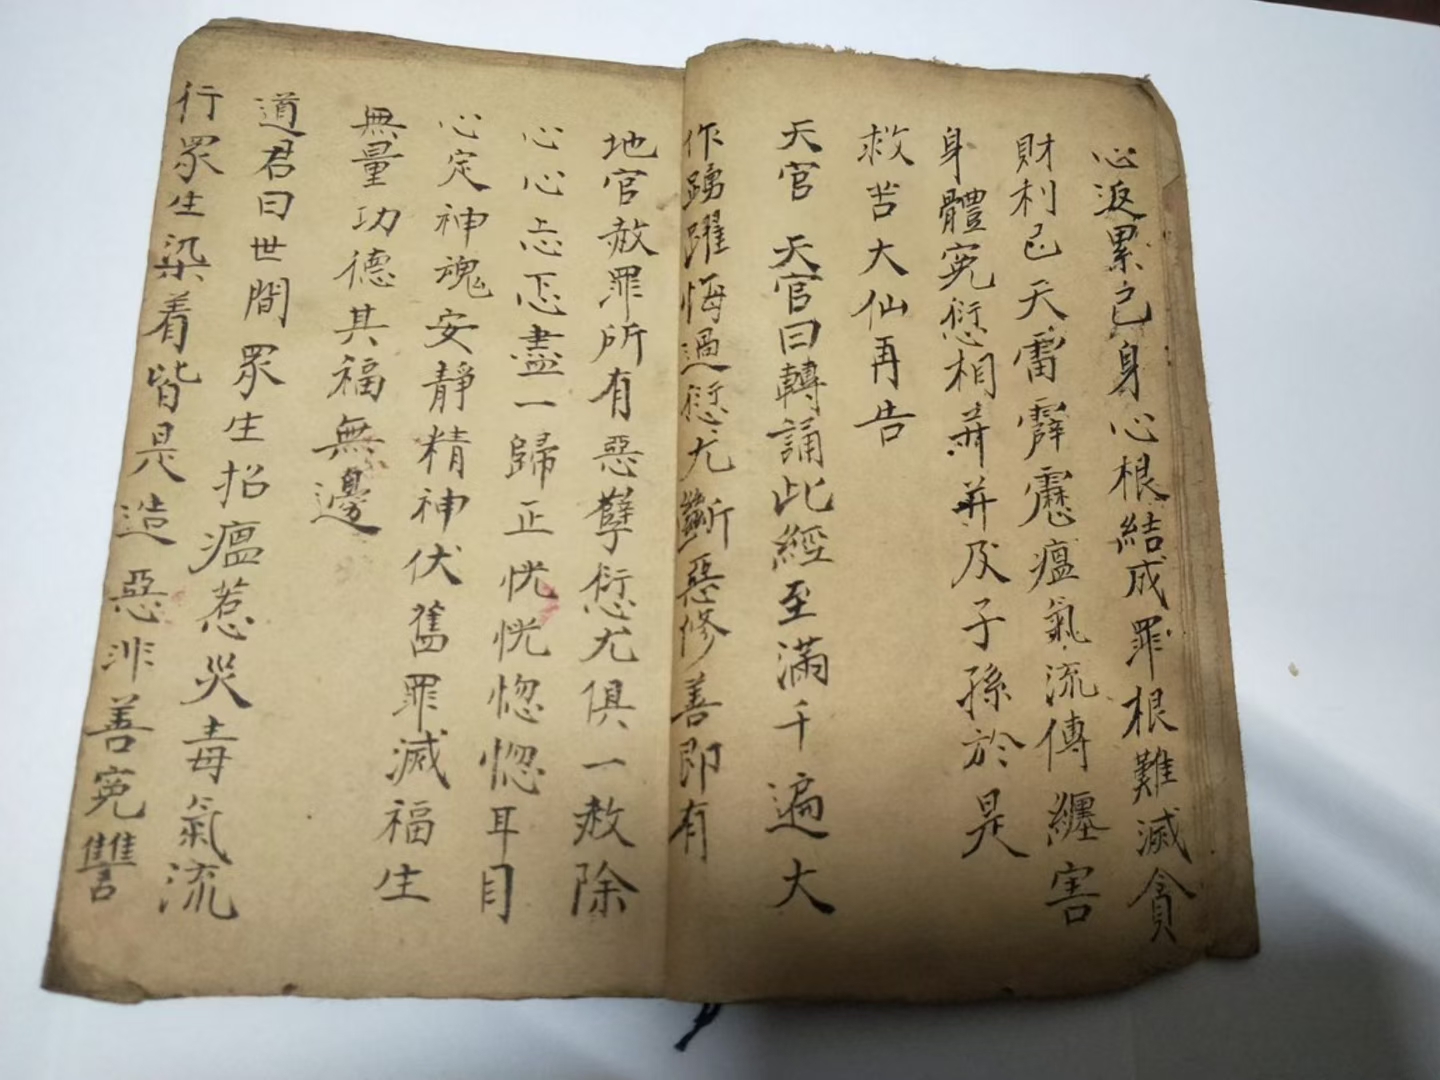 心返累己身心根結成罪根難滅貪
財利己天雷霹靂瘟氣流傳纏害
身體寃愆相葬并及子孫於是
救苦大仙再告
天官 天官曰轉誦此經至滿千遍大
作踴躍悔過愆尤斷惡修善即有
地官赦罪所有惡孽愆尤俱一赦除
心心忘惡盡一歸正恍恍惚惚耳目
心定神魂安靜精神伏舊罪滅福生
無量功德其福無邊
道君曰世間眾生招瘟惹災毒氣流
行眾生染着皆是造惡非善寃讐